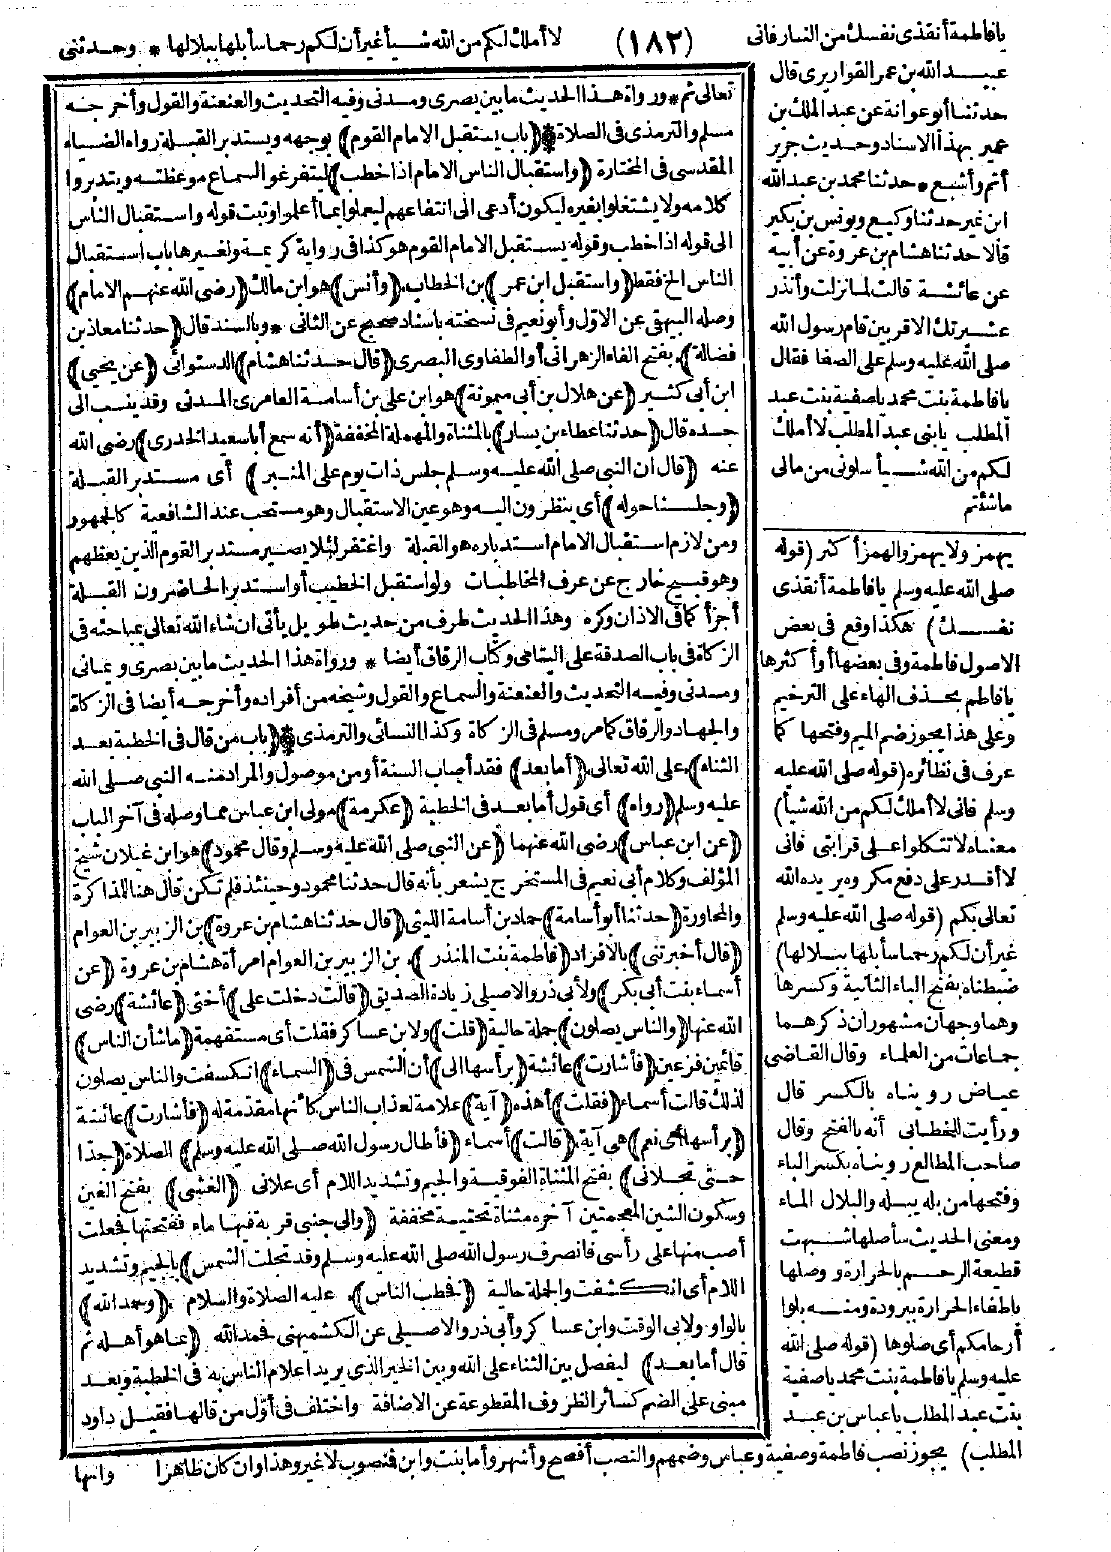 يافاطمة أنقذى نفسك من النار فانى (١٨٢) لا أملك لكم من الله شيأ غير أن لكم رحما سأبلها ببلالها * وحدثنى
عبيد الله بن عمر القواريرى قال
حدثنا أبو عوانة عن عبد الملك بن
عمير بهذا الاسناد وحديث جرير
أتم وأشبع * حدثنا محمد بن عبد الله
ابن نمير حدثنا وكيع ويونس بن بكير
قالا حدثنا هشام بن عروة عن أبيه
عن عائشة قالت لما نزلت وأنذر
عشيرتك الاقربين قام رسول الله
صلى الله عليه وسلم على الصفا فقال
يا فاطمة بنت محمد يا صفية بنت عبد
المطلب يا بنى عبد المطلب لا أملك
لكم من الله شيأ سلونى من مالى
ماشئتم
يهمز ولا يهمز والهمز أكثر (قوله
صلى الله عليه وسلم يا فاطمة أنقذى
نفسك) هكذا وقع فى بعض
الاصول فاطمة وفى بعضها أو أكثرها
يا فاطم بحذف الهاء على الترخيم
وعلى هذا يجوز ضم الميم وفتحها كما
عرف فى نظائره (قوله صلى الله عليه
وسلم فانى لا أملك لكم من الله شيأ)
معناه لا تتكلوا على قرابتى فانى
لا أقدر على دفع مكروه يريده الله
تعالى بكم (قوله صلى الله عليه وسلم
غير أن لكم رحما سأبلها ببلالها)
ضبطناه بفتح الباء الثانية وكسرها
وهما وجهان مشهوران ذكرهما
جماعات من العلماء وقال القاضى
عياض رويناه بالكسر قال
ورأيت للخطابى أنه بالفتح وقال
صاحب المطالع رويناه بكسر الباء
وفتحها من بله يبله والبلال الماء
ومعنى الحديث سأصلها شبهت
قطيعة الرحم بالحرارة ووصلها
باطفاء الحرارة ببرودة ومنه بلوا
أرحامكم أى صلوها (قوله صلى الله
عليه وسلم يا فاطمة بنت محمد يا صفية
بنت عبد المطلب يا عباس بن عبد
تعالى ثم * ورواة هذا الحديث ما بين بصرى ومدنى وفيه التحديث والعنعنة والقول وأخرجه
مسلم والترمذى فى الصلاة * (باب يستقبل الامام القوم) بوجهه ويستدبر القبلة رواه الضياء
المقدسى فى المختارة (واستقبال الناس الامام اذا خطب) ليتفرغوا لسماع موعظته ويتدبروا
كلامه ولا يشتغلوا بغيره ليكون أدعى الى انتفاعهم ليعملوا بما أعلموا وثبت قوله واستقبال الناس
الى قوله اذا خطب وقوله يستقبل الامام القوم هو كذا فى رواية كريمة ولغيرها باب استقبال
الناس الخ فقط (واستقبل ابن عمر) بن الخطاب (وأنس) هو ابن مالك (رضى الله عنهم الامام)
وصله البيهقى عن الاوّل وأبو نعيم فى نسخته باسناد صحيح عن الثانى * وبالسند قال (حدثنا معاذ بن
فضالة) بفتح الفاء الزهرانى أو الطفاوى البصرى (قال حدثنا هشام) الدستوائى (عن يحيى)
ابن أبى كثير (عن هلال بن أبى ميمونة) هو ابن على بن أسامة العامرى المدنى وقد ينسب الى
جده قال (حدثنا عطاء بن يسار) بالمثناة والمهملة المخففة (أنه سمع أبا سعيد الخدرى) رضى الله
عنه (قال ان النبى صلى الله عليه وسلم جلس ذات يوم على المنبر) أى مستدبر القبلة
(وجلسنا حوله) أى ينظرون اليه وهو عين الاستقبال وهو مستحب عند الشافعية كالجمهور
ومن لازم استقبال الامام استدباره هو القبلة واغتفر لئلا يصير مستدبر القوم الذين يعظهم
وهو قبيح خارج عن عرف المخاطبات ولو استقبل الخطيب أو استدبر الحاضرون القبلة
أجزأ كما فى الاذان وكره وهذا الحديث طرف من حديث طويل يأتى ان شاء الله تعالى بمباحثه فى
الزكاة فى باب الصدقة على اليتامى وكتاب الرقاق أيضا * ورواة هذا الحديث ما بين بصرى ويمانى
ومدنى وفيه التحديث والعنعنة والسماع والقول وشيخه من أفراده وأخرجه أيضا فى الزكاة
والجهاد والرقاق كما مر ومسلم فى الزكاة وكذا النسائى والترمذى * (باب من قال فى الخطبة بعد
الثناء) على الله تعالى (أما بعد) فقد أصاب السنة أو من موصول والمراد منه النبى صلى الله
عليه وسلم (رواه) أى قول أما بعد فى الخطبة (عكرمة) مولى ابن عباس مما وصله فى آخر الباب
(عن ابن عباس) رضى الله عنهما (عن النبى صلى الله عليه وسلم وقال محمود) هو ابن غيلان شيخ
المؤلف وكلام أبى نعيم فى المستخرج يشعر بأنه قال حدثنا محمود وحينئذ فلم تكن قال هنا للمذاكرة
والمحاورة (حدثنا أبو أسامة) حماد بن أسامة الليثى (قال حدثنا هشام بن عروة) بن الزبير بن العوام
(قال أخبرتنى) بالافراد (فاطمة بنت المنذر) بن الزبير بن العوام امرأة هشام بن عروة (عن
أسماء بنت أبى بكر) ولأبى ذر والاصيلى زيادة الصديق (قالت دخلت على) أختى (عائشة) رضى
الله عنها (والناس يصلون) جملة حالية (قلت) ولابن عساكر فقلت أى مستفهمة (ما شأن الناس)
قائمين فزعين (فأشارت) عائشة (برأسها الى) أن الشمس فى (السماء) انكسفت والناس يصلون
لذلك قالت أسماء (فقلت) أهذه (آية) علامة لعذاب الناس كأنها مقدمة له (فأشارت) عائشة
(برأسها أى نعم) هى آية (قالت) أسماء (فأطال رسول الله صلى الله عليه وسلم) الصلاة (جدا
حتى تجلانى) بفتح المثناة الفوقية والجيم وتشديد اللام أى علانى (الغشى) بفتح الغين
وسكون الشين المعجمتين آخره مثناة تحتية مخففة (والى جنبى قربة فيها ماء ففتحتها فجعلت
أصب منها على رأسى فانصرف رسول الله صلى الله عليه وسلم وقد تجلت الشمس) بالجيم وتشديد
اللام أى انكشفت والجملة حالية (فخطب الناس) عليه الصلاة والسلام (وحمد الله)
بالواو ولابى الوقت وابن عساكر وأبى ذر والاصيلى عن الكشميهنى فحمد الله (بما هو أهله ثم
قال أما بعد) ليفصل بين الثناء على الله وبين الخبر الذى يريد اعلام الناس به فى الخطبة وبعد
مبنى على الضم كسائر الظروف المقطوعة عن الاضافة واختلف فى أوّل من قالها فقيل داود
المطلب) يجوز نصب فاطمة وصفية وعباس وضمهم والنصب أفصح وأشهر وأما بنت وابن فمنصوب لا غير وهذا وان كان ظاهرا وانها